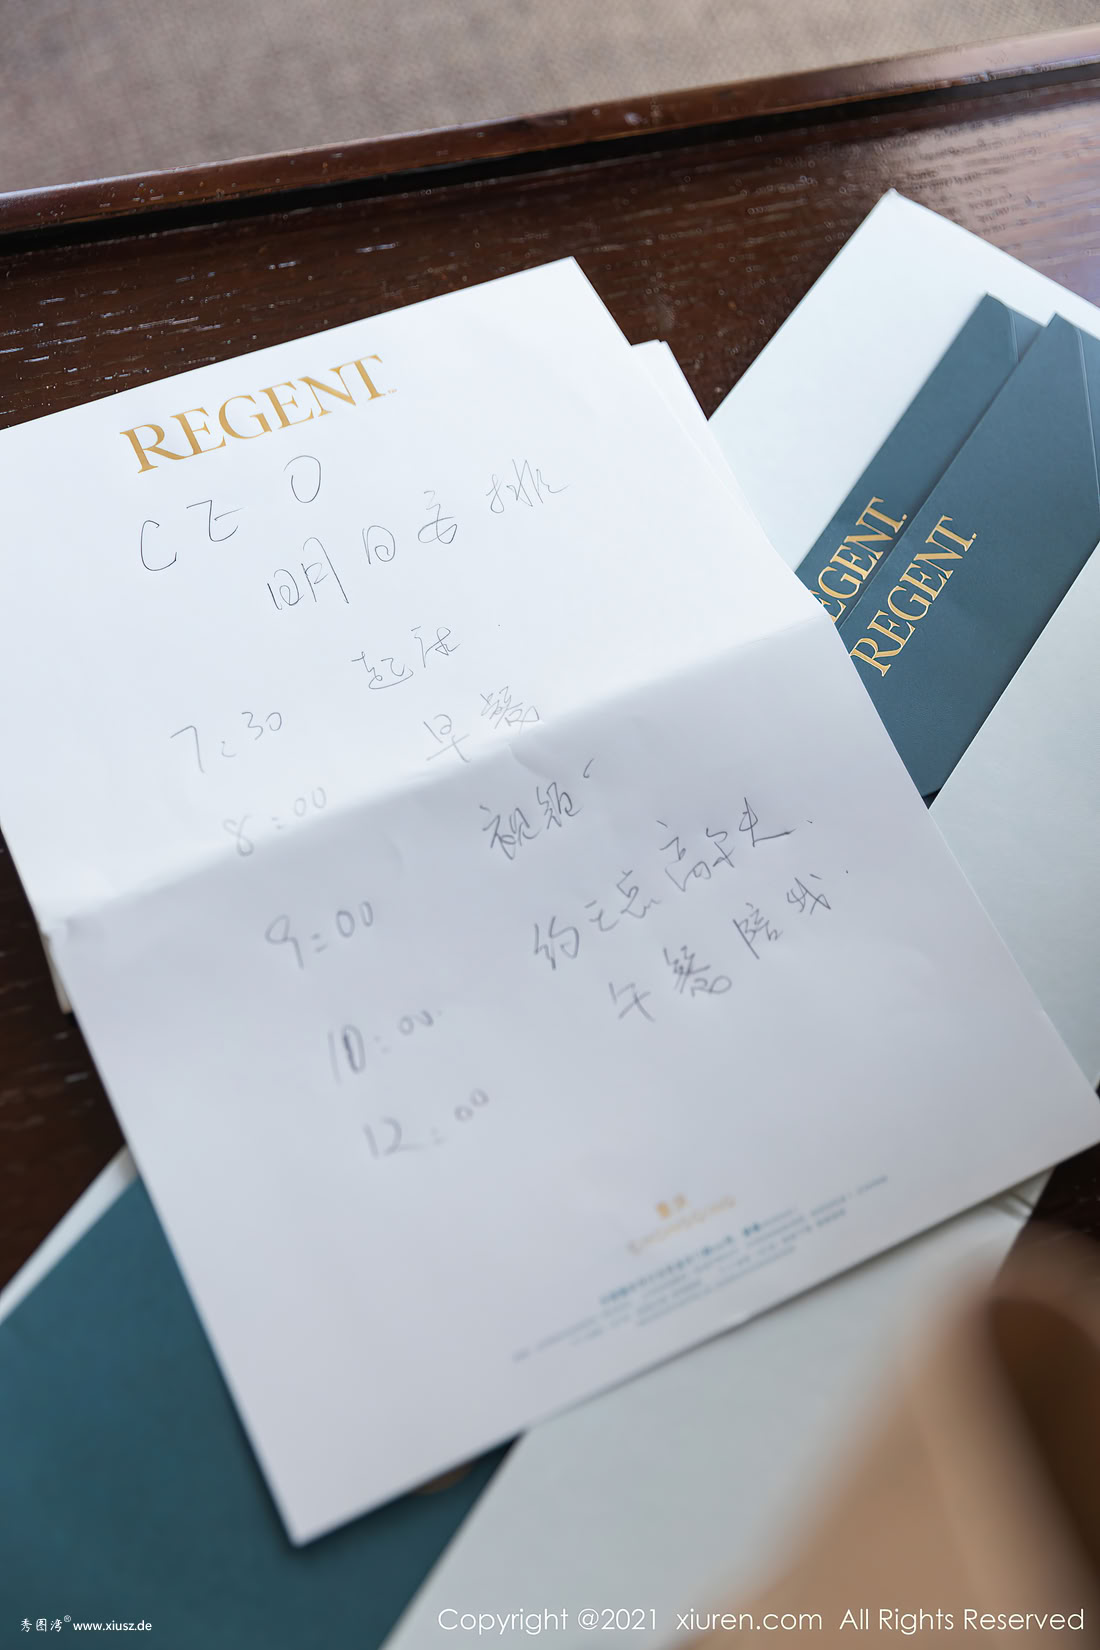 REGENT
CEO
明日安排
7:30 起床.
8:00 早餐
9:00 视频
10:00. 约王总高尔夫.
12:00 午餐陪我.
重庆
CHONGQING
REGENT
REGENT
秀图湾® www.xiusz.de
Copyright @2021 xiuren.com All Rights Reserved